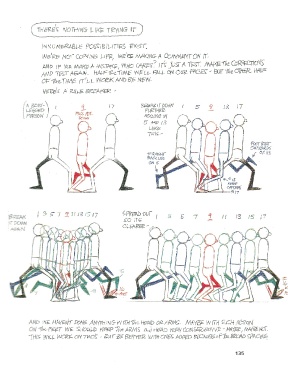 THERE'S NOTHING LIKE TRYING IT
INNUMERABLE POSSIBILITIES EXIST.
WE'RE NOT COPYING LIFE, WE'RE MAKING A COMMENT ON IT.
AND IF WE MAKE A MISTAKE, WHO CARES? IT'S JUST A TEST. MAKE THE CORRECTIONS
AND TEST AGAIN. HALF THE TIME WE'LL FALL ON OUR FACES - BUT THE OTHER HALF
OF THE TIME IT'LL WORK AND BE NEW.
HERE'S A RULE BREAKER -
1 9 17
BREAK IT DOWN
FURTHER
ADDING IN
5 AND 13
LIKE
THIS -
1 5 9 13 17
BREAK
IT DOWN
AGAIN
1 3 5 7 9 11 13 15 17
SPREAD OUT
SO IT'S
CLEARER -
1 3 5 7 9 11 13 15 17
AND WE HAVEN'T DONE ANYTHING WITH THE HEAD OR ARMS. MAYBE WITH SUCH ACTION
ON THE FEET WE SHOULD KEEP THE ARMS AND HEAD MORE CONSERVATIVE - MAYBE, MAYBE NOT.
THIS WILL WORK ON TWOS - BUT BE BETTER WITH ONES ADDED BECAUSE OF THE BROAD SPACING.
135